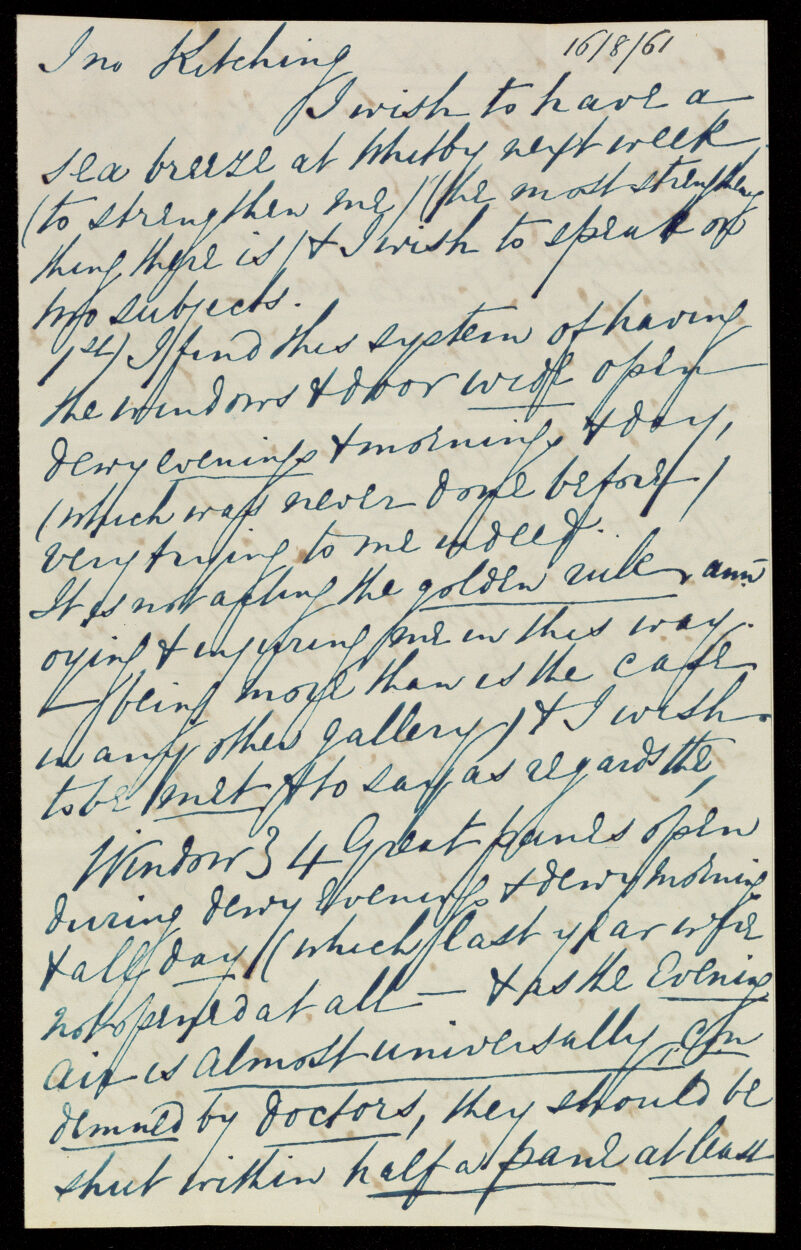 Jno Kitching 16/8/61
I wish to have a
sea breeze at Whitby next week
(to strengthen me) (the most strengthening
thing there is) & I wish to speak on
two subjects.
1st) I find this system of having
the windows & door wide open
dewy evenings & mornings & day,
(which was never done before)
very trying to me indeed.
It is not acting the golden rule, ann-
oying & injuring me in this way.
— (being more than is the case
in any other gallery) & I wish
to be met & to say as regards the
Window} 4 Great panes open
during dewy evenings & dewy mornings
& all day (which last year were
not opened at all — & as the Evening
air is almost universally con
demned by doctors, they should be
shut within half a pane at least